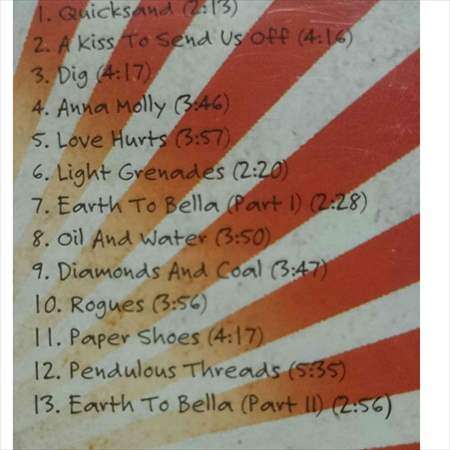 1. Quicksand (2:13)
2. A Kiss To Send Us Off (4:16)
3. Dig (4:17)
4. Anna Molly (3:46)
5. Love Hurts (3:57)
6. Light Grenades (2:20)
7. Earth To Bella (Part I) (2:28)
8. Oil And Water (3:50)
9. Diamonds And Coal (3:47)
10. Rogues (3:56)
11. Paper Shoes (4:17)
12. Pendulous Threads (5:35)
13. Earth To Bella (Part II) (2:56)